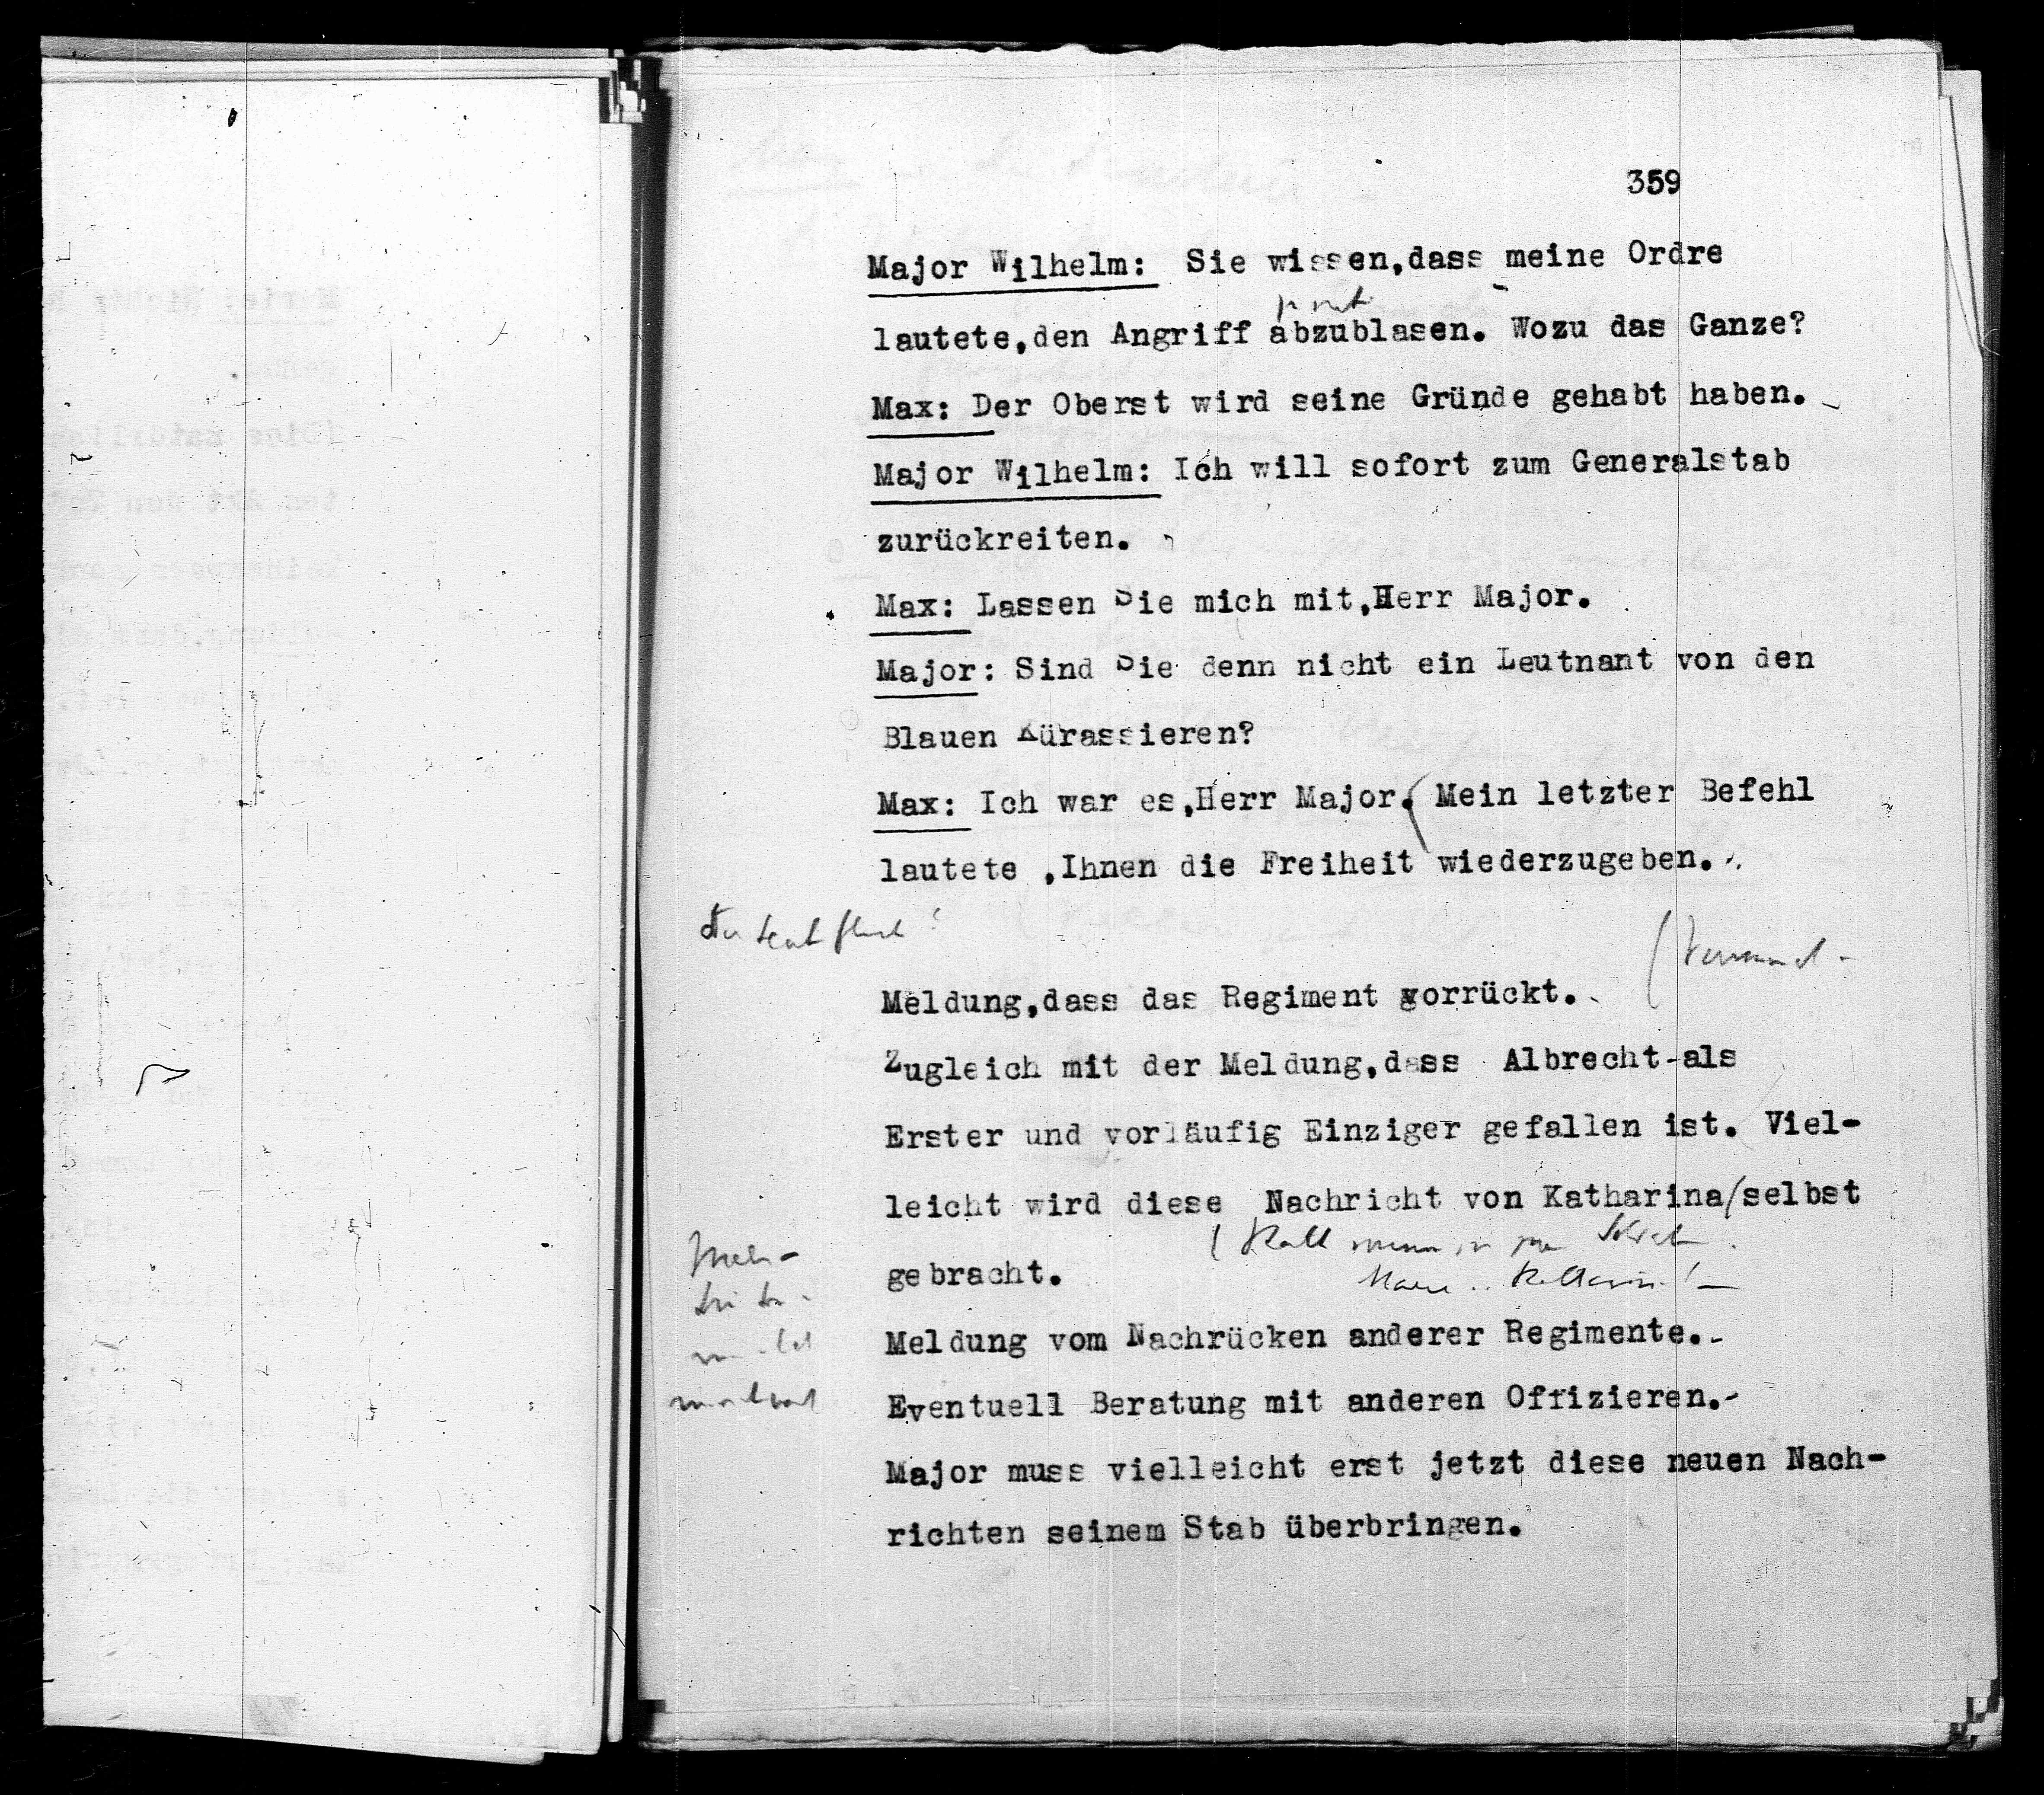 359
Major Wilhelm: Sie wissen,dass meine Ordre
lautete,den Angriff abzublasen. Wozu das Ganze?
Max: Der Oberst wird seine Gründe gehabt haben.
Major Wilhelm: Ich will sofort zum Generalstab
zurückreiten.
Max: Lassen Sie mich mit,Herr Major.
Major: Sind Sie denn nicht ein Leutnant von den
Blauen Kürassieren?
Max: Ich war es,Herr Major. Mein letzter Befehl
lautete ,Ihnen die Freiheit wiederzugeben.
Meldung,dass das Regiment vorrückt.
Zugleich mit der Meldung,dass Albrecht als
Erster und vorläufig Einziger gefallen ist. Viel-
leicht wird diese Nachricht von Katharina selbst
gebracht.
Meldung vom Nachrücken anderer Regimente.
Eventuell Beratung mit anderen Offizieren.-
Major muss vielleicht erst jetzt diese neuen Nach-
richten seinem Stab überbringen.